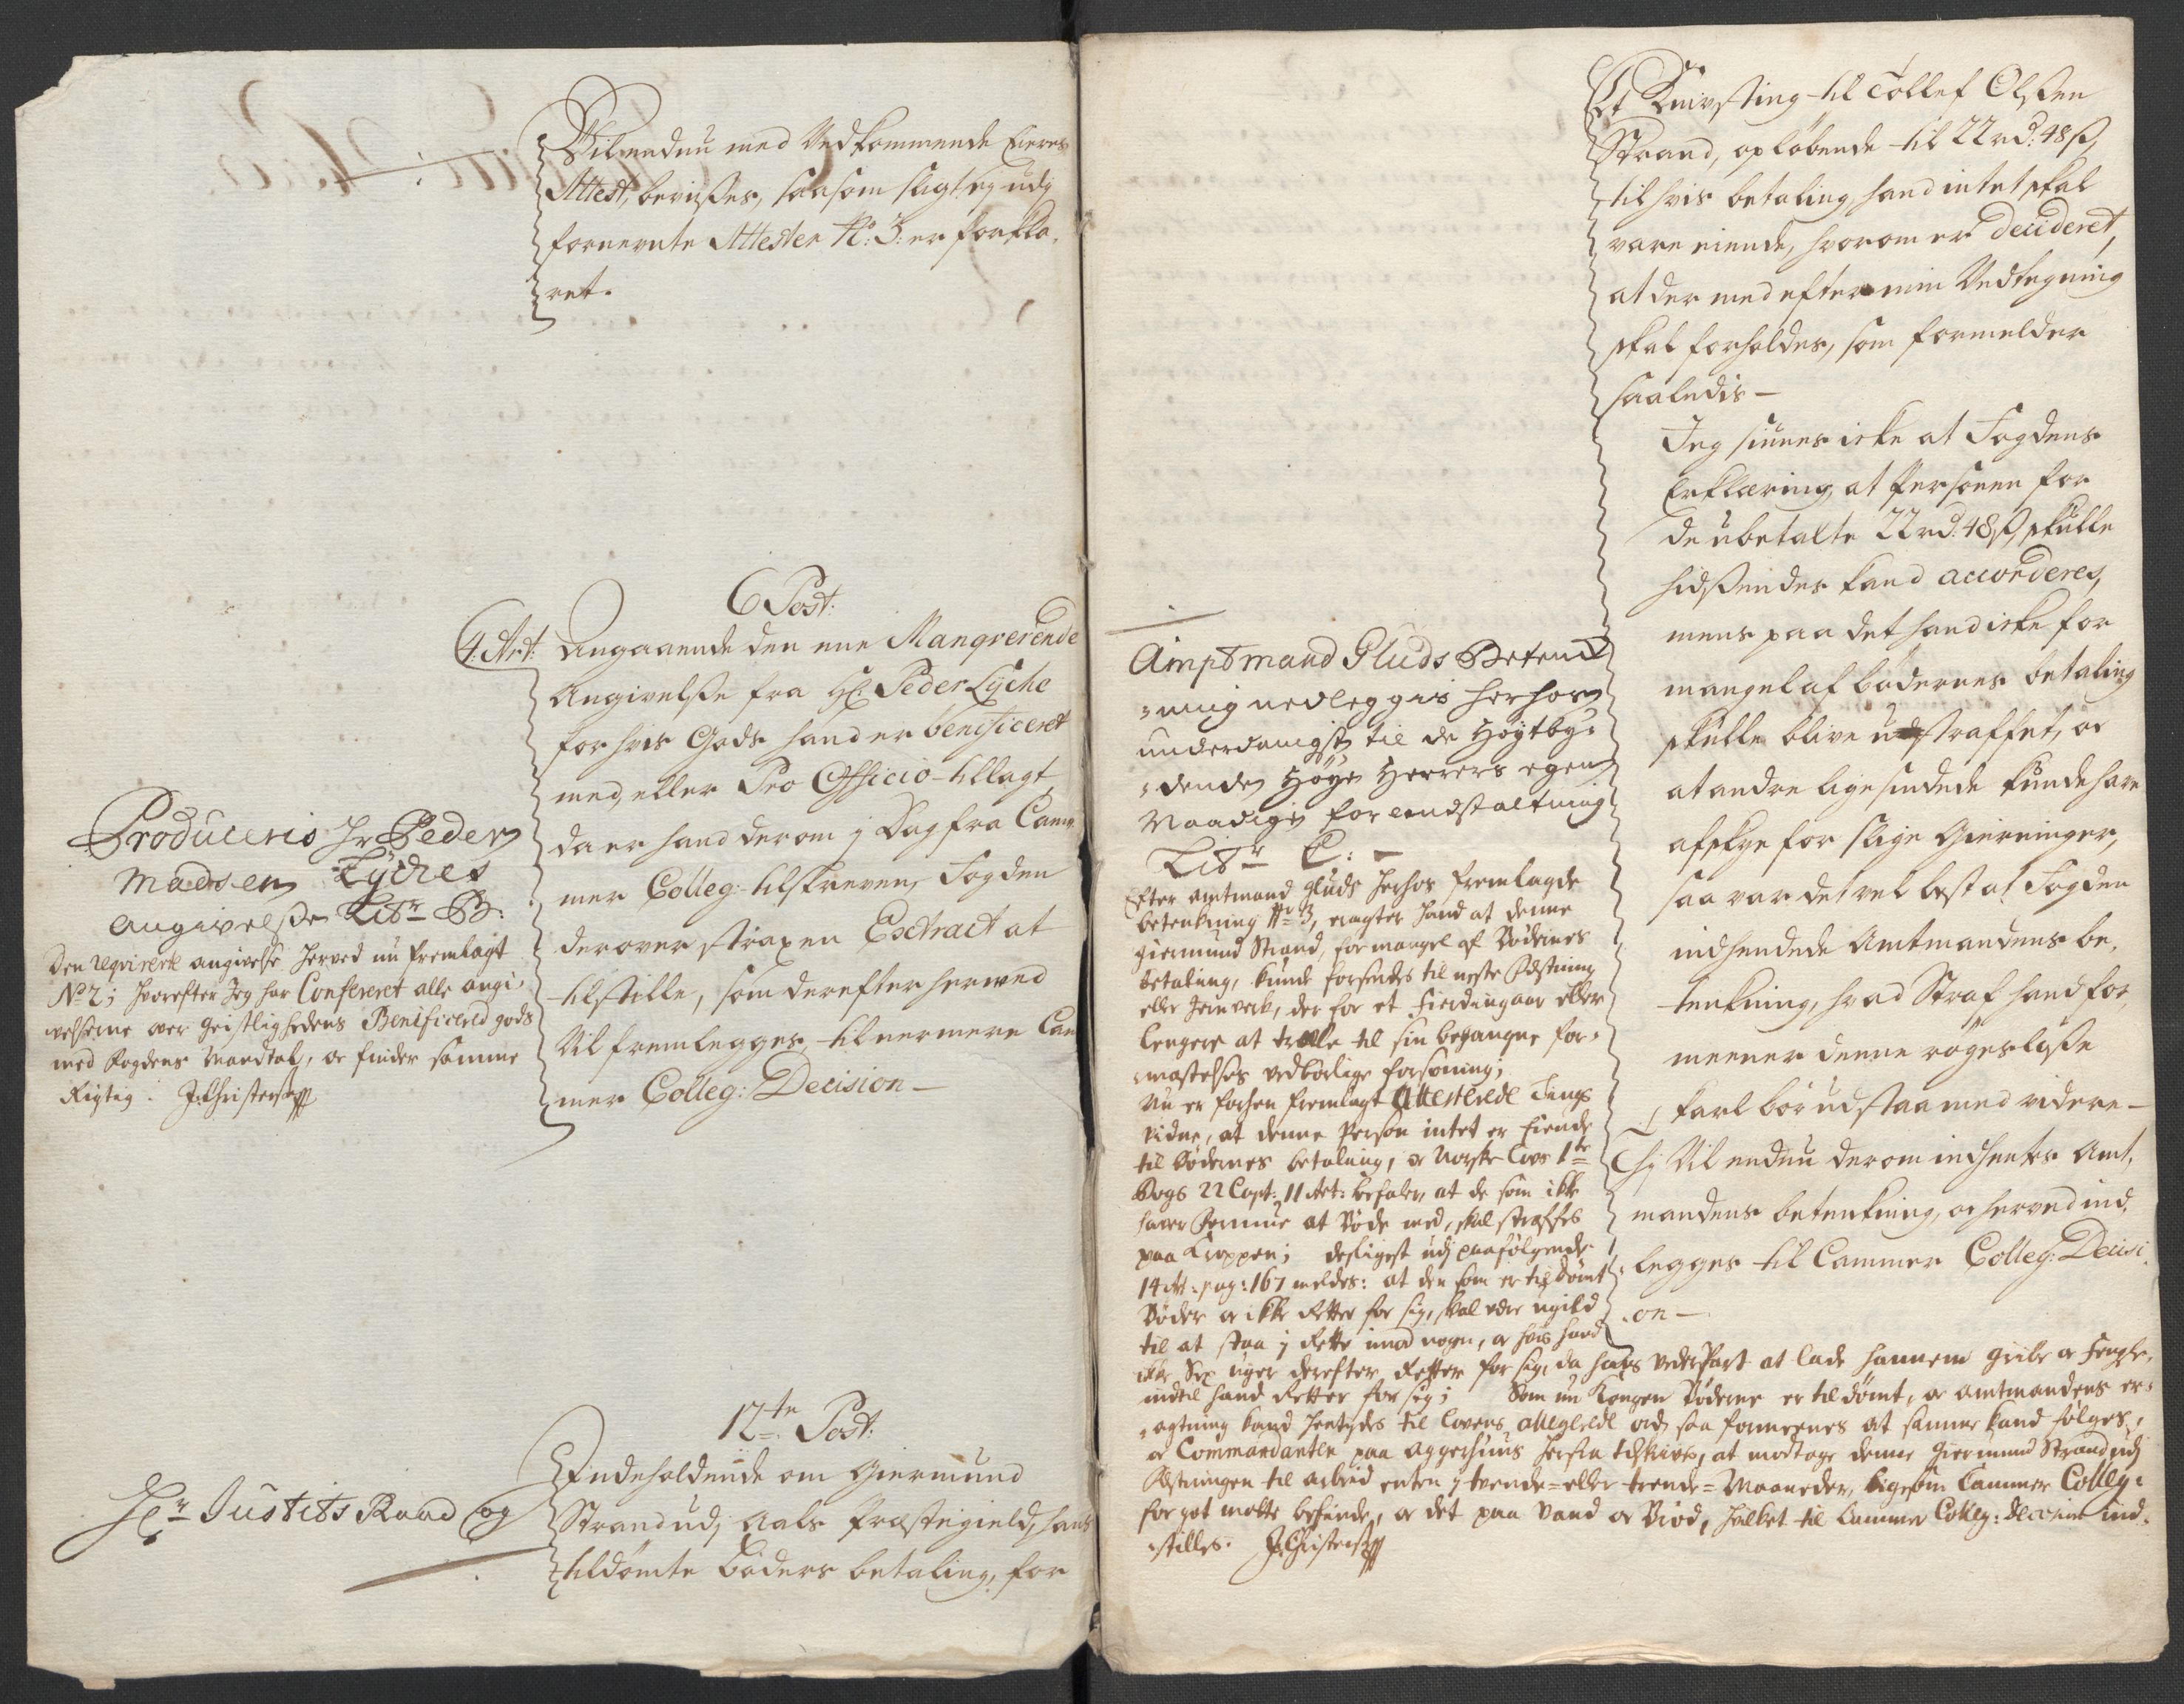 Vil endnu med Vedkommende Eieres
Attest, bevises, saasom sligt ej udj
fornevnte Attester No: 3: er forkla-
ret.
6 Post:
4: Art: Angaaende den ene Manqverende
Angivelse fra Hr: Peder Lyche
for hvis Gods hand er beneficeret
med, eller Pro Officio tillagt,
da er hand derom j Dag fra Cam-
mer Colleg: tilskreven, Fogden
derover strax en Extract at
tilstille, som derefter herved
Vil fremlegges, til nermere Cam
mer Colleg: Decision —
Produceris Hr Peder
Madsen Lyches
angivelse Litr B:
Den reqvirerte angivelse herved nu fremlagt
No 2; hvorefter Jeg har Confereret alle angi-
velserne over Geistlighedens Beneficered gods
med Fogdens Mandtal, og finder samme
Rigtig. J. Christens
12te Post:
Indeholdende om Giermund
Strand udj Aals Præstegield, hans
tildømte bøders betaling, for
Hr Justits Raad og
Et Knivsting til Tollef Olsen
Strand, opløbende til 22 rd: 48 s,
til hvis betaling, hand intet skal
vare eiende, hvorom er Decideret,
at der med efter min Vedtegning
skal forholdes, som formelder
saaledis —
Jeg siunes icke at Fogdens
Erklæring, at Personen for
de ubetalte 22 rd: 48 s, skulle
hidsendes kand accorderes,
mens paa det hand icke for
mangel af bødernes betaling
skulle blive ustraffet, og
at andre ligesindede kunde have
afskye for slige Gierninger,
saa var det vel best at Fogden
indhendede Amtmandens be-
tenkning, hvad Straf hand for
meener denne røgesløse
karl bør udstaa med videre —
Vil endnu derom indhentes Amt-
mandens betenkning, og herved ind-
legges til Cammer Colleg: Decisi-
on —
Amptmand Gluds Betenk
ning nedleggis herhos
underdanigst til de Høytby-
dende Høye Herrers egen
Naadige foranstaltning
Litr C: —
Efter Amtmand Gluds herhos fremlagde
betenkning No 3, eragter hand at denne
Giermund Strand, for mangel af Bødernes
betaling, kunde forsendes til neste Festning
eller Jernverk, der for et Fierdingaar eller
lengere at trælle til sin begangne for-
mastelses vedbørlige forsoning;
Nu er forhen fremlagt Attesterede Tings
vidne, at denne Person intet er Eiende
til Bødernes betaling, og Norske Lovs 1te
Bogs 22 Capt: 11 Art: befaler at de som ikke
haver Formue at Bøde med, skal straffes
paa Kroppen; desligest udj paafølgende
14 Art: pag: 167 meldes: at den som er tildømt
Bøder og ikke Retter for sig, skal være ugild
til at staa j Rette imod nogen, og hvis hand
ikke Sex uger derefter Retter for sig, da hans vederPart at lade hannem gribe og Fengsle,
indtil hand Retter for sig; Som nu Kongen Bøderne er tildømt, og Amtmandens er-
agtning kand hentydes til Lovens allegerede ord, saa formeenes at samme kand følges,
og Commandanten paa Aggershuus herfra tilskrives, at modtage denne Giermund Strand udj
Festningen til arbeid enten j tvende- eller trende- Maaneder, ligesom Cammer Colleg:
for got motte befinde, og det paa Vand og Brød, hvilket til Cammer Colleg: Decision ind-
stilles. J. Christens